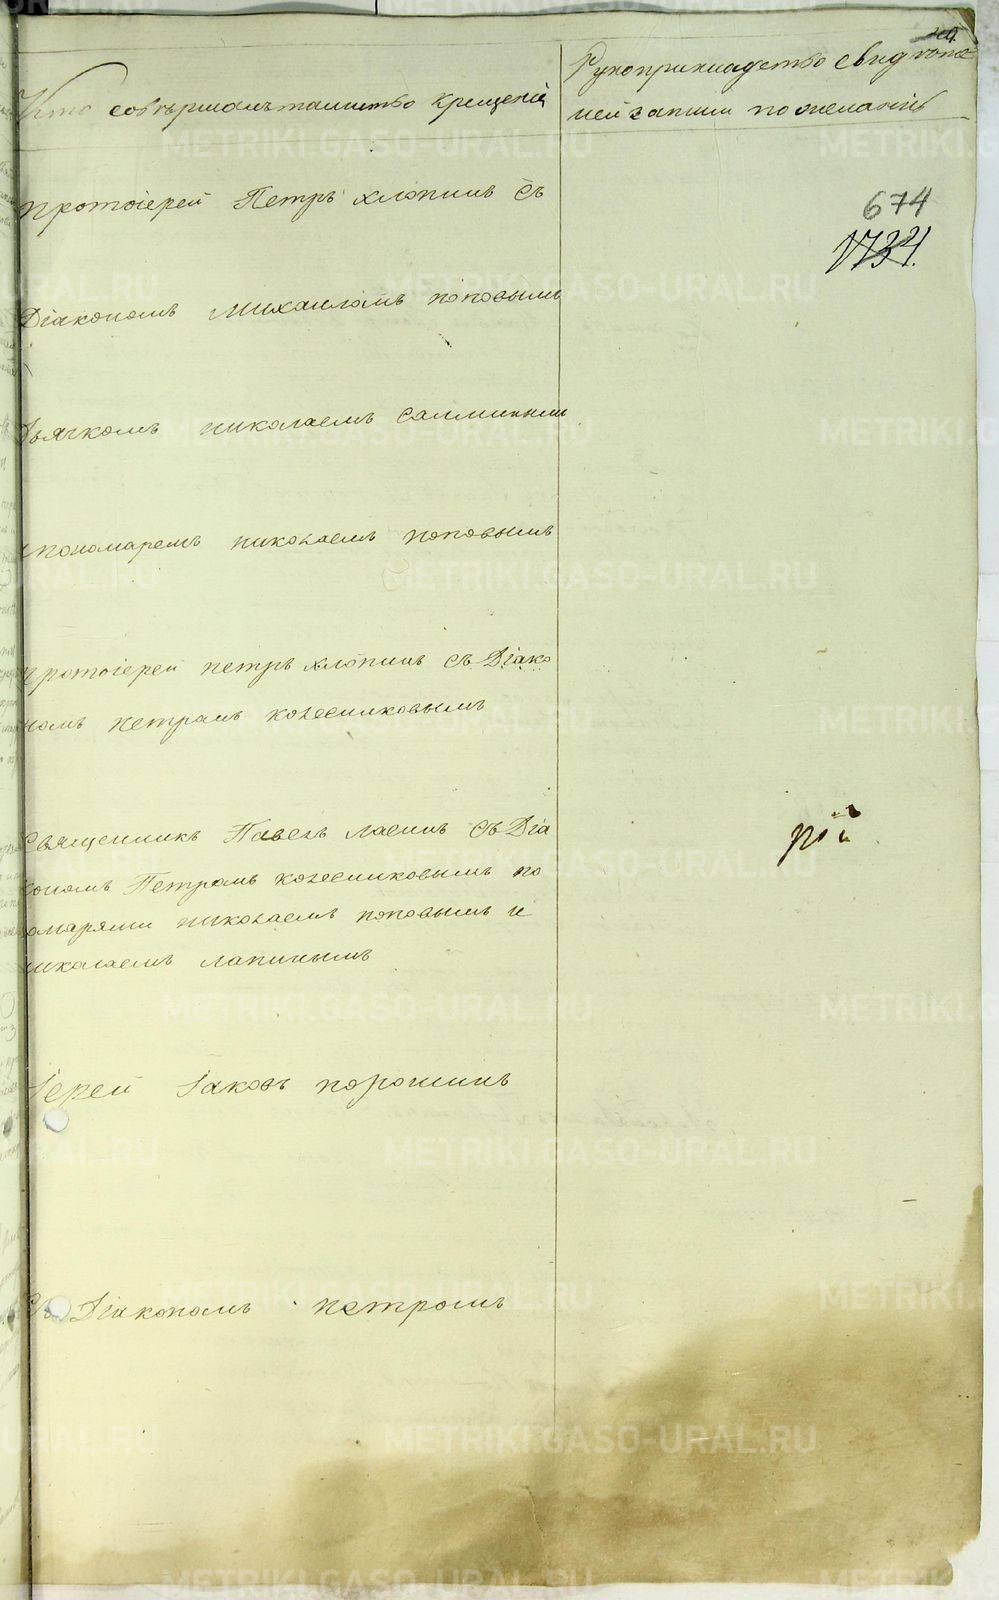 Кто совершалъ таинство крещенія
Рукоприкладство свидѣте
лей записи по желанію
674
1734.
протоіерей Петръ хлопинъ съ
Діакономъ Михаиломъ поповымъ
Дьячкомъ николаемъ
пономаремъ николаемъ поповымъ
протоіерей петръ хлопинъ съ Діако
номъ петромъ колесниковымъ
священникъ Павелъ съ Діа
кономъ Петромъ колесниковымъ по
номарями николаемъ поповымъ и
николаемъ лапинымъ
рій
Іерей Іаковъ порошинъ
съ Діакономъ петромъ
METRIKI.GASO-URAL.RU